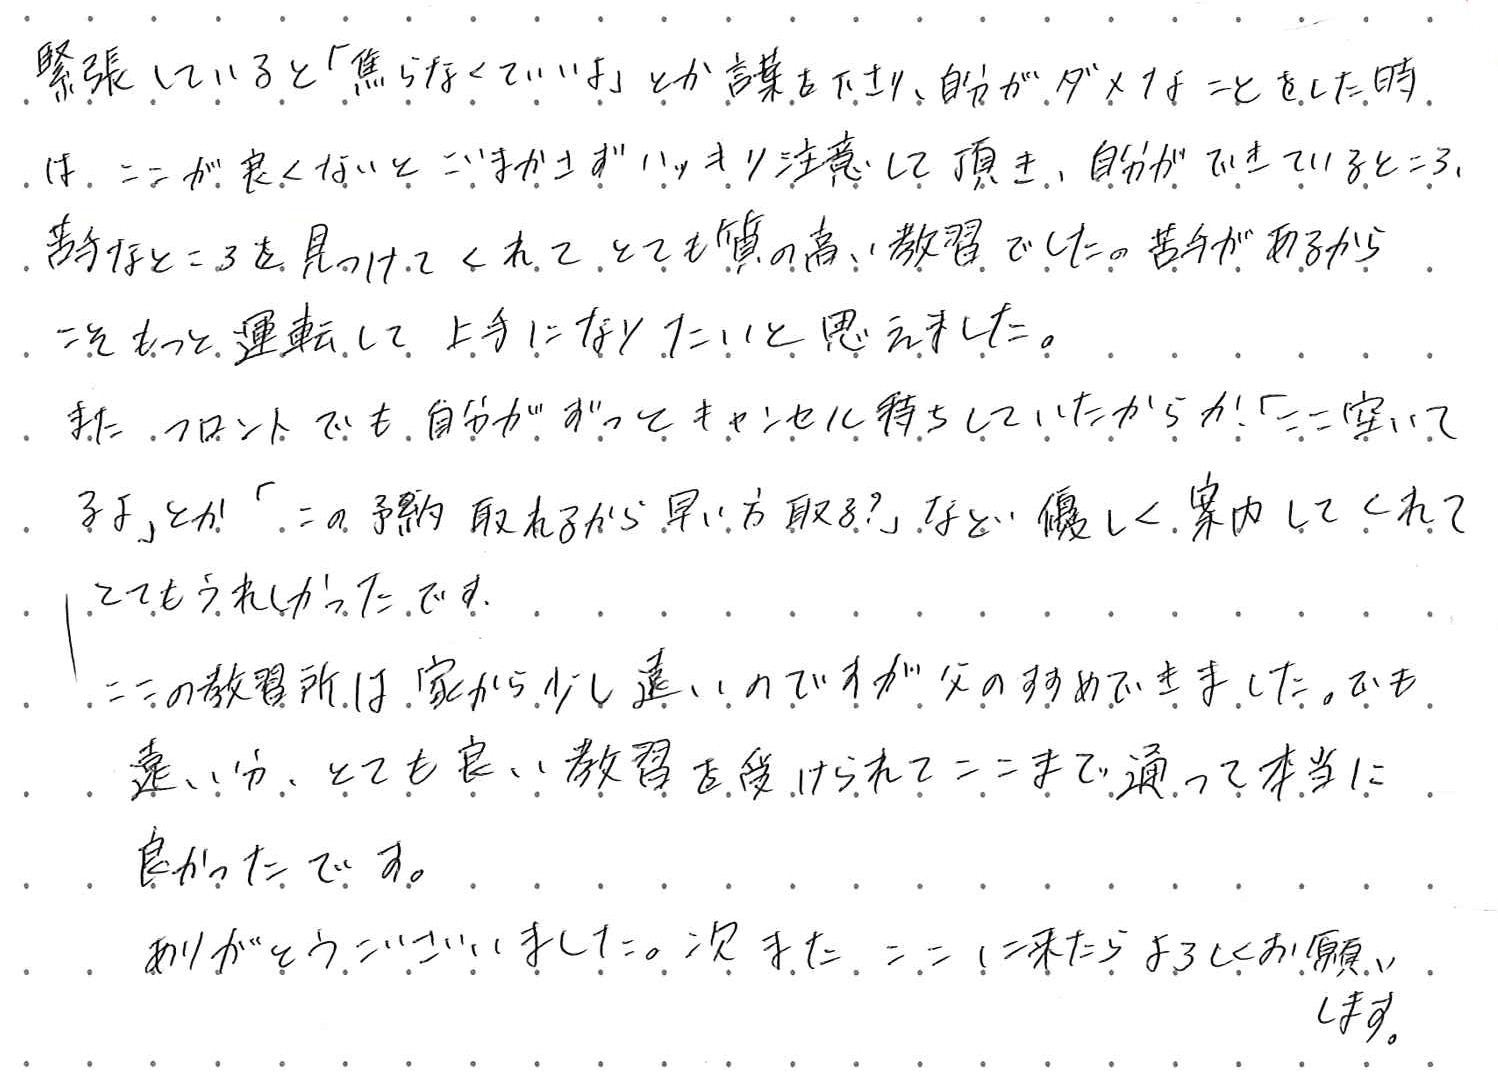 緊張していると「焦らなくていいよ」とか言葉を下さり、自分がダメなことをした時
は、ここが良くないとごまかさずハッキリ注意して頂き、自分ができているところ、
苦手なところを見つけてくれてとても質の高い教習でした。苦手があるから
こそもっと運転して上手になりたいと思えました。
また フロントでも自分がずっとキャンセル待ちしていたからか、「ここ空いて
るよ」とか「この予約取れるから早い方取る?」など優しく案内してくれて
とてもうれしかったです。
ここの教習所は家から少し遠いのですが父のすすめできました。でも
遠い分、とても良い教習を受けられてここまで通って本当に
良かったです。
ありがとうございました。次またここに来たらよろしくお願い
します。